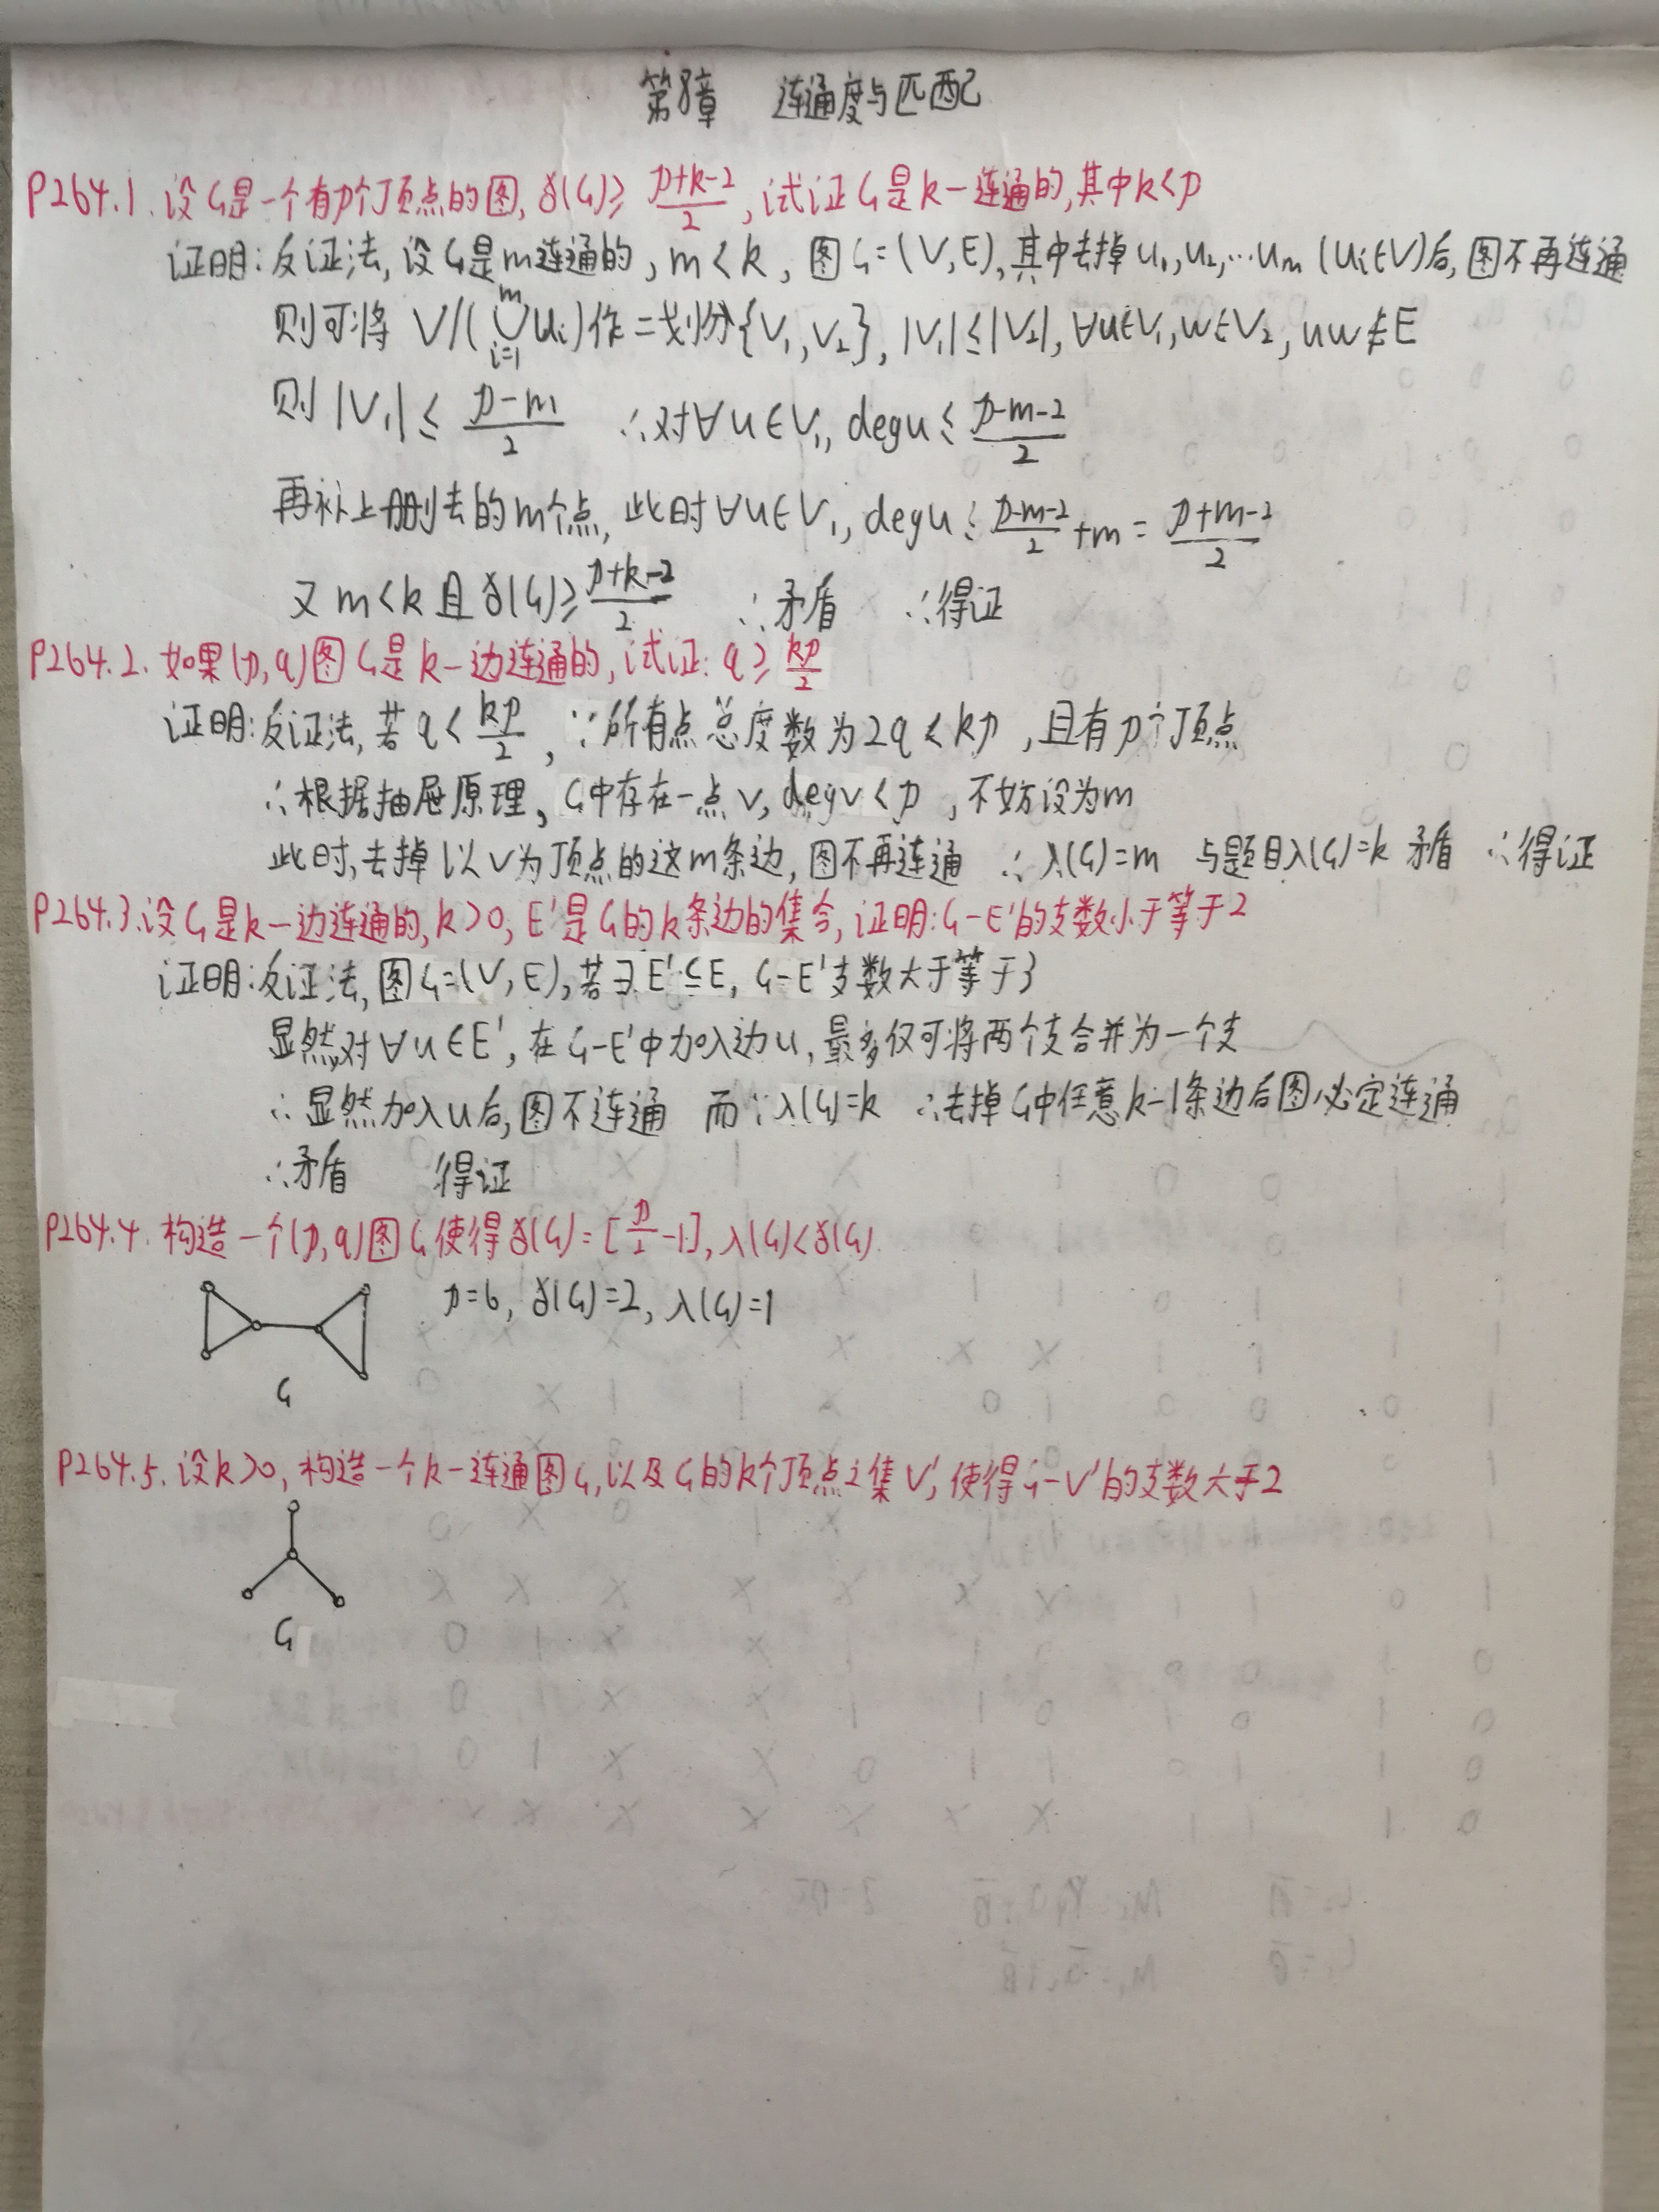 第8章 连通度与匹配
P264.1.设G是一个有p个顶点的图,δ(G)≥(p+k-2)/2,试证G是k-连通的,其中k<p
证明:反证法,设G是m连通的,m<k,图G=(V,E),其中去掉u₁,u₂,…um(ui∈V)后,图不再连通
则可将 V/(⋃ᵢ₌₁ᵐ ui)作二划分{V₁,V₂},|V₁|≤|V₂|,∀u∈V₁,w∈V₂,uw∉E
则|V₁|≤(p-m)/2 ∴对∀u∈V₁,degu≤(p-m-2)/2
再补上删去的m个点,此时∀u∈V₁,degu≤(p-m-2)/2+m=(p+m-2)/2
又m<k且δ(G)≥(p+k-2)/2 ∴矛盾 ∴得证
P264.2.如果(p,q)图G是k-边连通的,试证:q≥kp/2
证明:反证法,若q<kp/2,∵所有点总度数为2q<kp,且有p个顶点
∴根据抽屉原理,G中存在一点v,degv<p,不妨设为m
此时,去掉以v为顶点的这m条边,图不再连通 ∴λ(G)=m 与题目λ(G)=k矛盾 ∴得证
P264.3.设G是k-边连通的,k>0,E'是G的k条边的集合,证明:G-E'的支数小于等于2
证明:反证法,图G=(V,E),若∃E'⊆E,G-E'支数大于等于3
显然对∀u∈E',在G-E'中加入边u,最多仅可将两个支合并为一个支
∴显然加入u后,图不连通 而∵λ(G)=k ∴去掉G中任意k-1条边后图必定连通
∴矛盾 得证
P264.4.构造一个(p,q)图G使得δ(G)=[p/2-1],λ(G)<δ(G)
p=6,δ(G)=2,λ(G)=1
G
P264.5.设k>0,构造一个k-连通图G,以及G的k个顶点之集V',使得G-V'的支数大于2
G